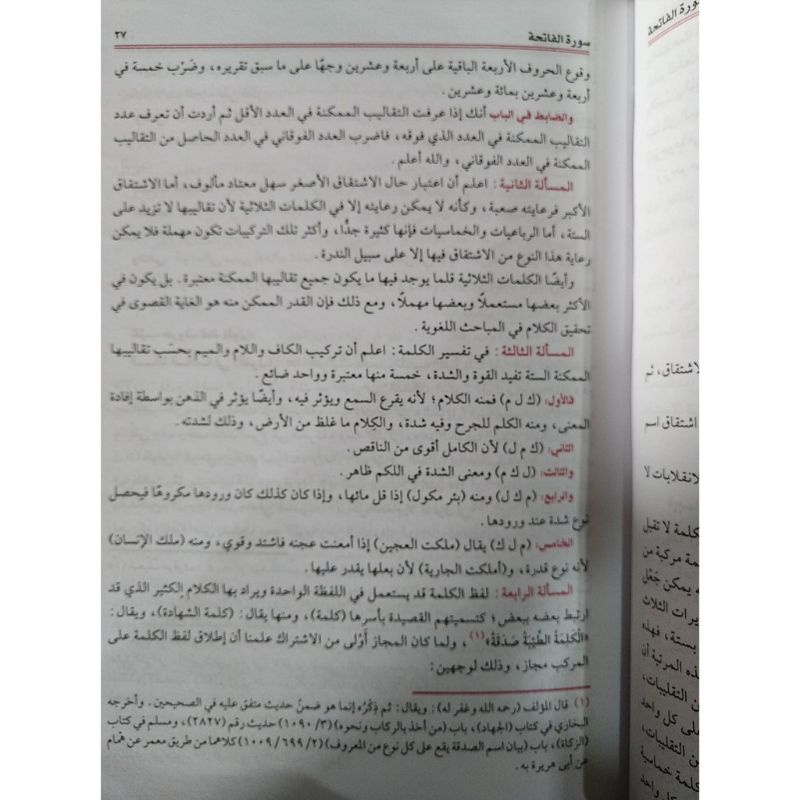 سورة الفاتحة
٢٧
وقوع الحروف الأربعة الباقية على أربعة وعشرين وجهًا على ما سبق تقريره، وضَرْب خمسة في
أربعة وعشرين بمائة وعشرين.
والضابط في الباب أنك إذا عرفت التقاليب الممكنة في العدد الأقل ثم أردت أن تعرف عدد
التقاليب الممكنة في العدد الذي فوقه، فاضرب العدد الفوقاني في العدد الحاصل من التقاليب
الممكنة في العدد الفوقاني، والله أعلم.
المسألة الثانية: اعلم أن اعتبار حال الاشتقاق الأصغر سهل معتاد مألوف، أما الاشتقاق
الأكبر فرعايته صعبة، وكأنه لا يمكن رعايته إلا في الكلمات الثلاثية لأن تقاليبها لا تزيد على
الستة، أما الرباعيات والخماسيات فإنها كثيرة جدًّا، وأكثر تلك التركيبات تكون مهملة فلا يمكن
رعاية هذا النوع من الاشتقاق فيها إلا على سبيل الندرة.
وأيضًا الكلمات الثلاثية قلما يوجد فيها ما يكون جميع تقاليبها الممكنة معتبرة. بل يكون في
الأكثر بعضها مستعملاً وبعضها مهملاً، ومع ذلك فإن القدر الممكن منه هو الغاية القصوى في
تحقيق الكلام في المباحث اللغوية.
المسألة الثالثة: في تفسير الكلمة: اعلم أن تركيب الكاف واللام والميم بحسَب تقاليبها
الممكنة الستة تفيد القوة والشدة، خمسة منها معتبرة وواحد ضائع.
فالأول: (ك ل م) فمنه الكلام؛ لأنه يقرع السمع ويؤثر فيه، وأيضًا يؤثر في الذهن بواسطة إفادة
المعنى، ومنه الكلم للجرح وفيه شدة، والكِلام ما غلظ من الأرض، وذلك لشدته.
الثاني: (ك م ل) لأن الكامل أقوى من الناقص.
والثالث: (ل ك م) ومعنى الشدة في اللكم ظاهر.
والرابع: (م ك ل) ومنه (بئر مكول) إذا قل مائها، وإذا كان كذلك كان ورودها مكروهًا فيحصل
نوع شدة عند ورودها.
الخامس: (م ل ك) يقال (ملكت العجين) إذا أمعنت عجنه فاشتد وقوي، ومنه (ملك الإنسان)
لأنه نوع قدرة، و(أملكت الجارية) لأن بعلها يقدر عليها.
المسألة الرابعة: لفظ الكلمة قد يستعمل في اللفظة الواحدة ويراد بها الكلام الكثير الذي قد
ارتبط بعضه ببعض؛ كتسميتهم القصيدة بأسرها (كلمة)، ومنها يقال: (كلمة الشهادة)، ويقال:
«الْكَلِمَةُ الطَّيِّبَةُ صَدَقَةٌ»(١)، ولما كان المجاز أَوْلى من الاشتراك علمنا أن إطلاق لفظ الكلمة على
المركب مجاز، وذلك لوجهين:
(١) قال المؤلف (رحمه الله وغفر له): ويقال: ثم ذِكْرُه إنما هو ضمنُ حديث متفق عليه في الصحيحين. وأخرجه
البخاري في كتاب (الجهاد)، باب (من أخذ بالركاب ونحوه) (٣/ ١٠٩٠) حديث رقم (٢٨٢٧)، ومسلم في كتاب
(الزكاة)، باب (بيان اسم الصدقة يقع على كل نوع من المعروف) (٢/ ٦٩٩/ ١٠٠٩) كلاهما من طريق معمر عن همام
عن أبي هريرة به.
سورة الفاتحة
الاشتقاق، ثم
اشتقاق اسم
الانقلابات لا
الكلمة لا تقبل
مركبة من
يمكن جَعْل
الثلاث
بستة، فهذه
هذه المرتبة أن
التقليبات،
على كل واحد
من التقليبات،
كلمة خماسية
كل واحد